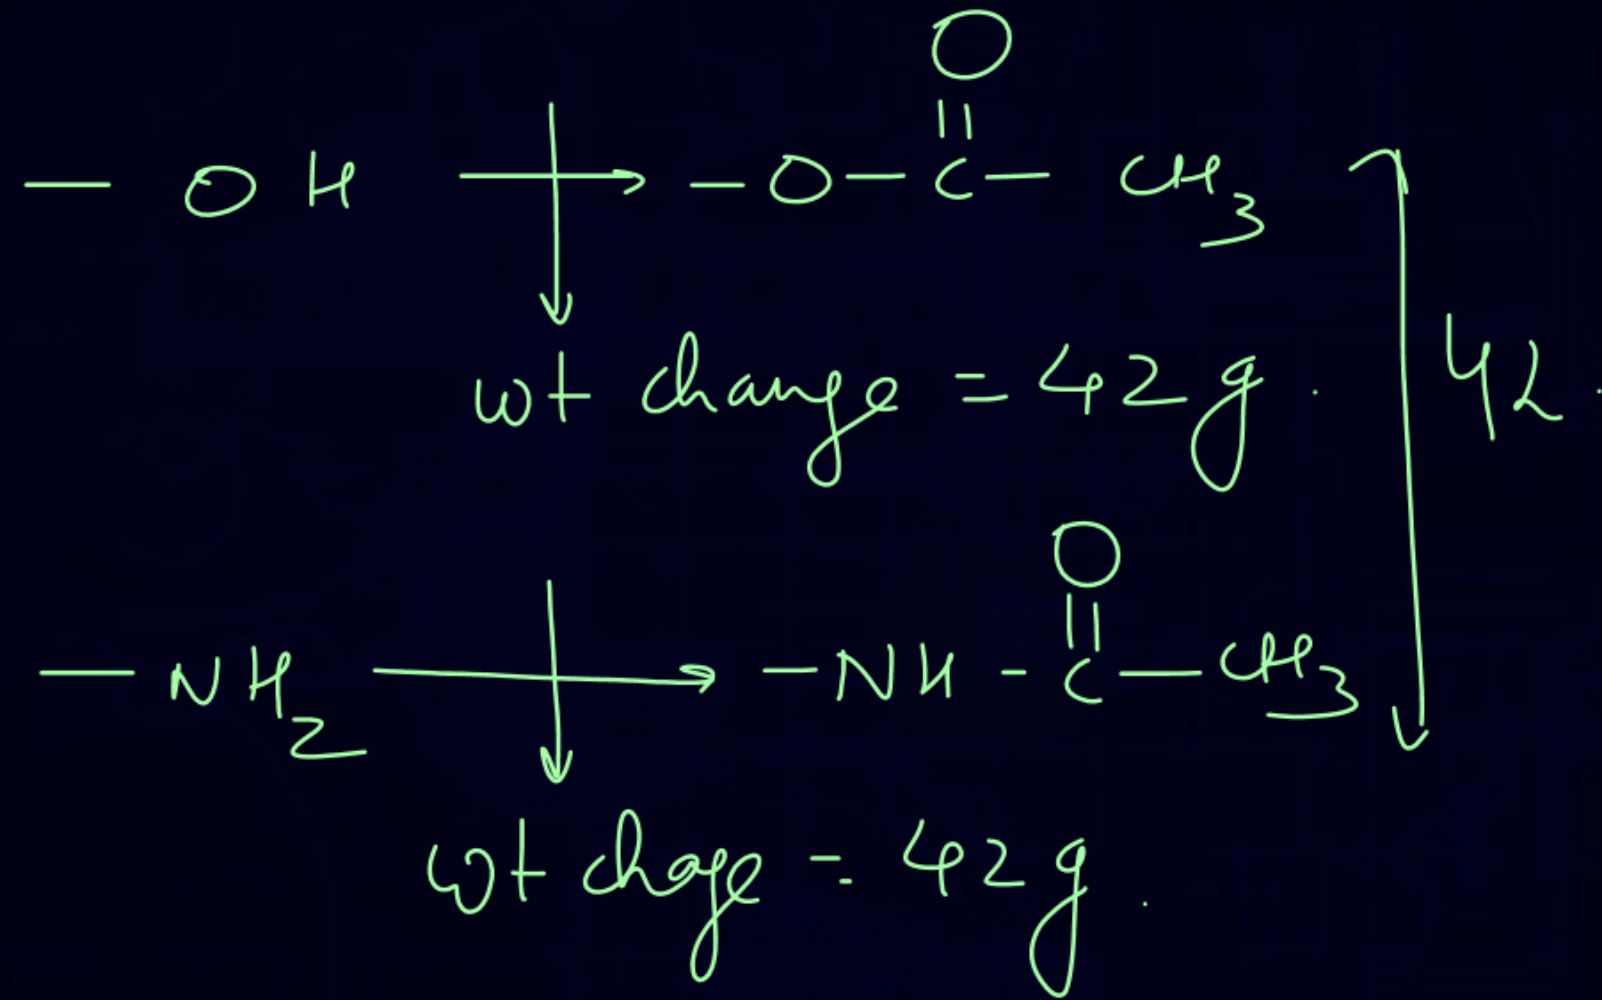 O
||
— OH → — O — C — CH₃
wt change = 42 g.
42.
O
||
— NH₂ → — NH - C — CH₃
wt chage = 42 g.